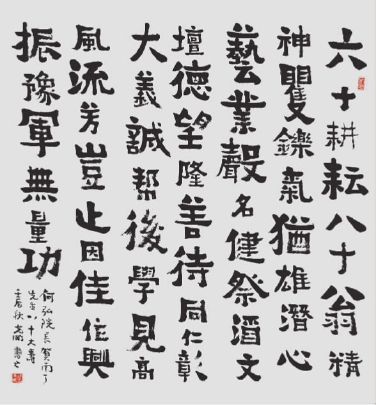 六十耕耘八十翁精
神矍鑠氣猶雄潛心
藝業聲名健祭酒文
壇德望隆善待同仁彰
大義誠幫後學見高
風流芳豈止因佳作興
振豫軍無量功
何弘院長賀南丁
先生八十大壽
秋書之